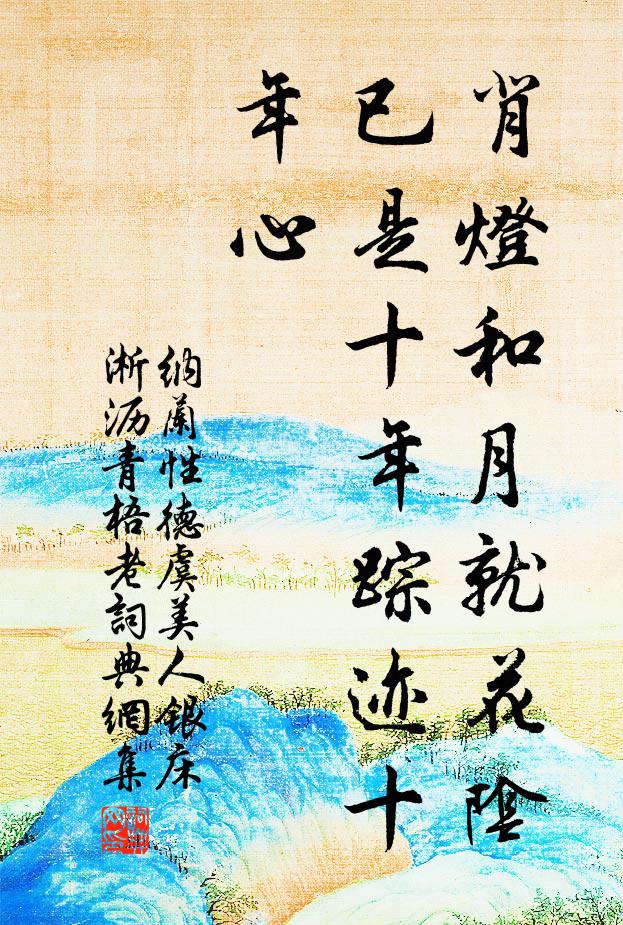 肖燈和月就花陰
已是十年踪迹十
年心
納蘭性德虞美人銀床
淅沥青梧老詞典網集